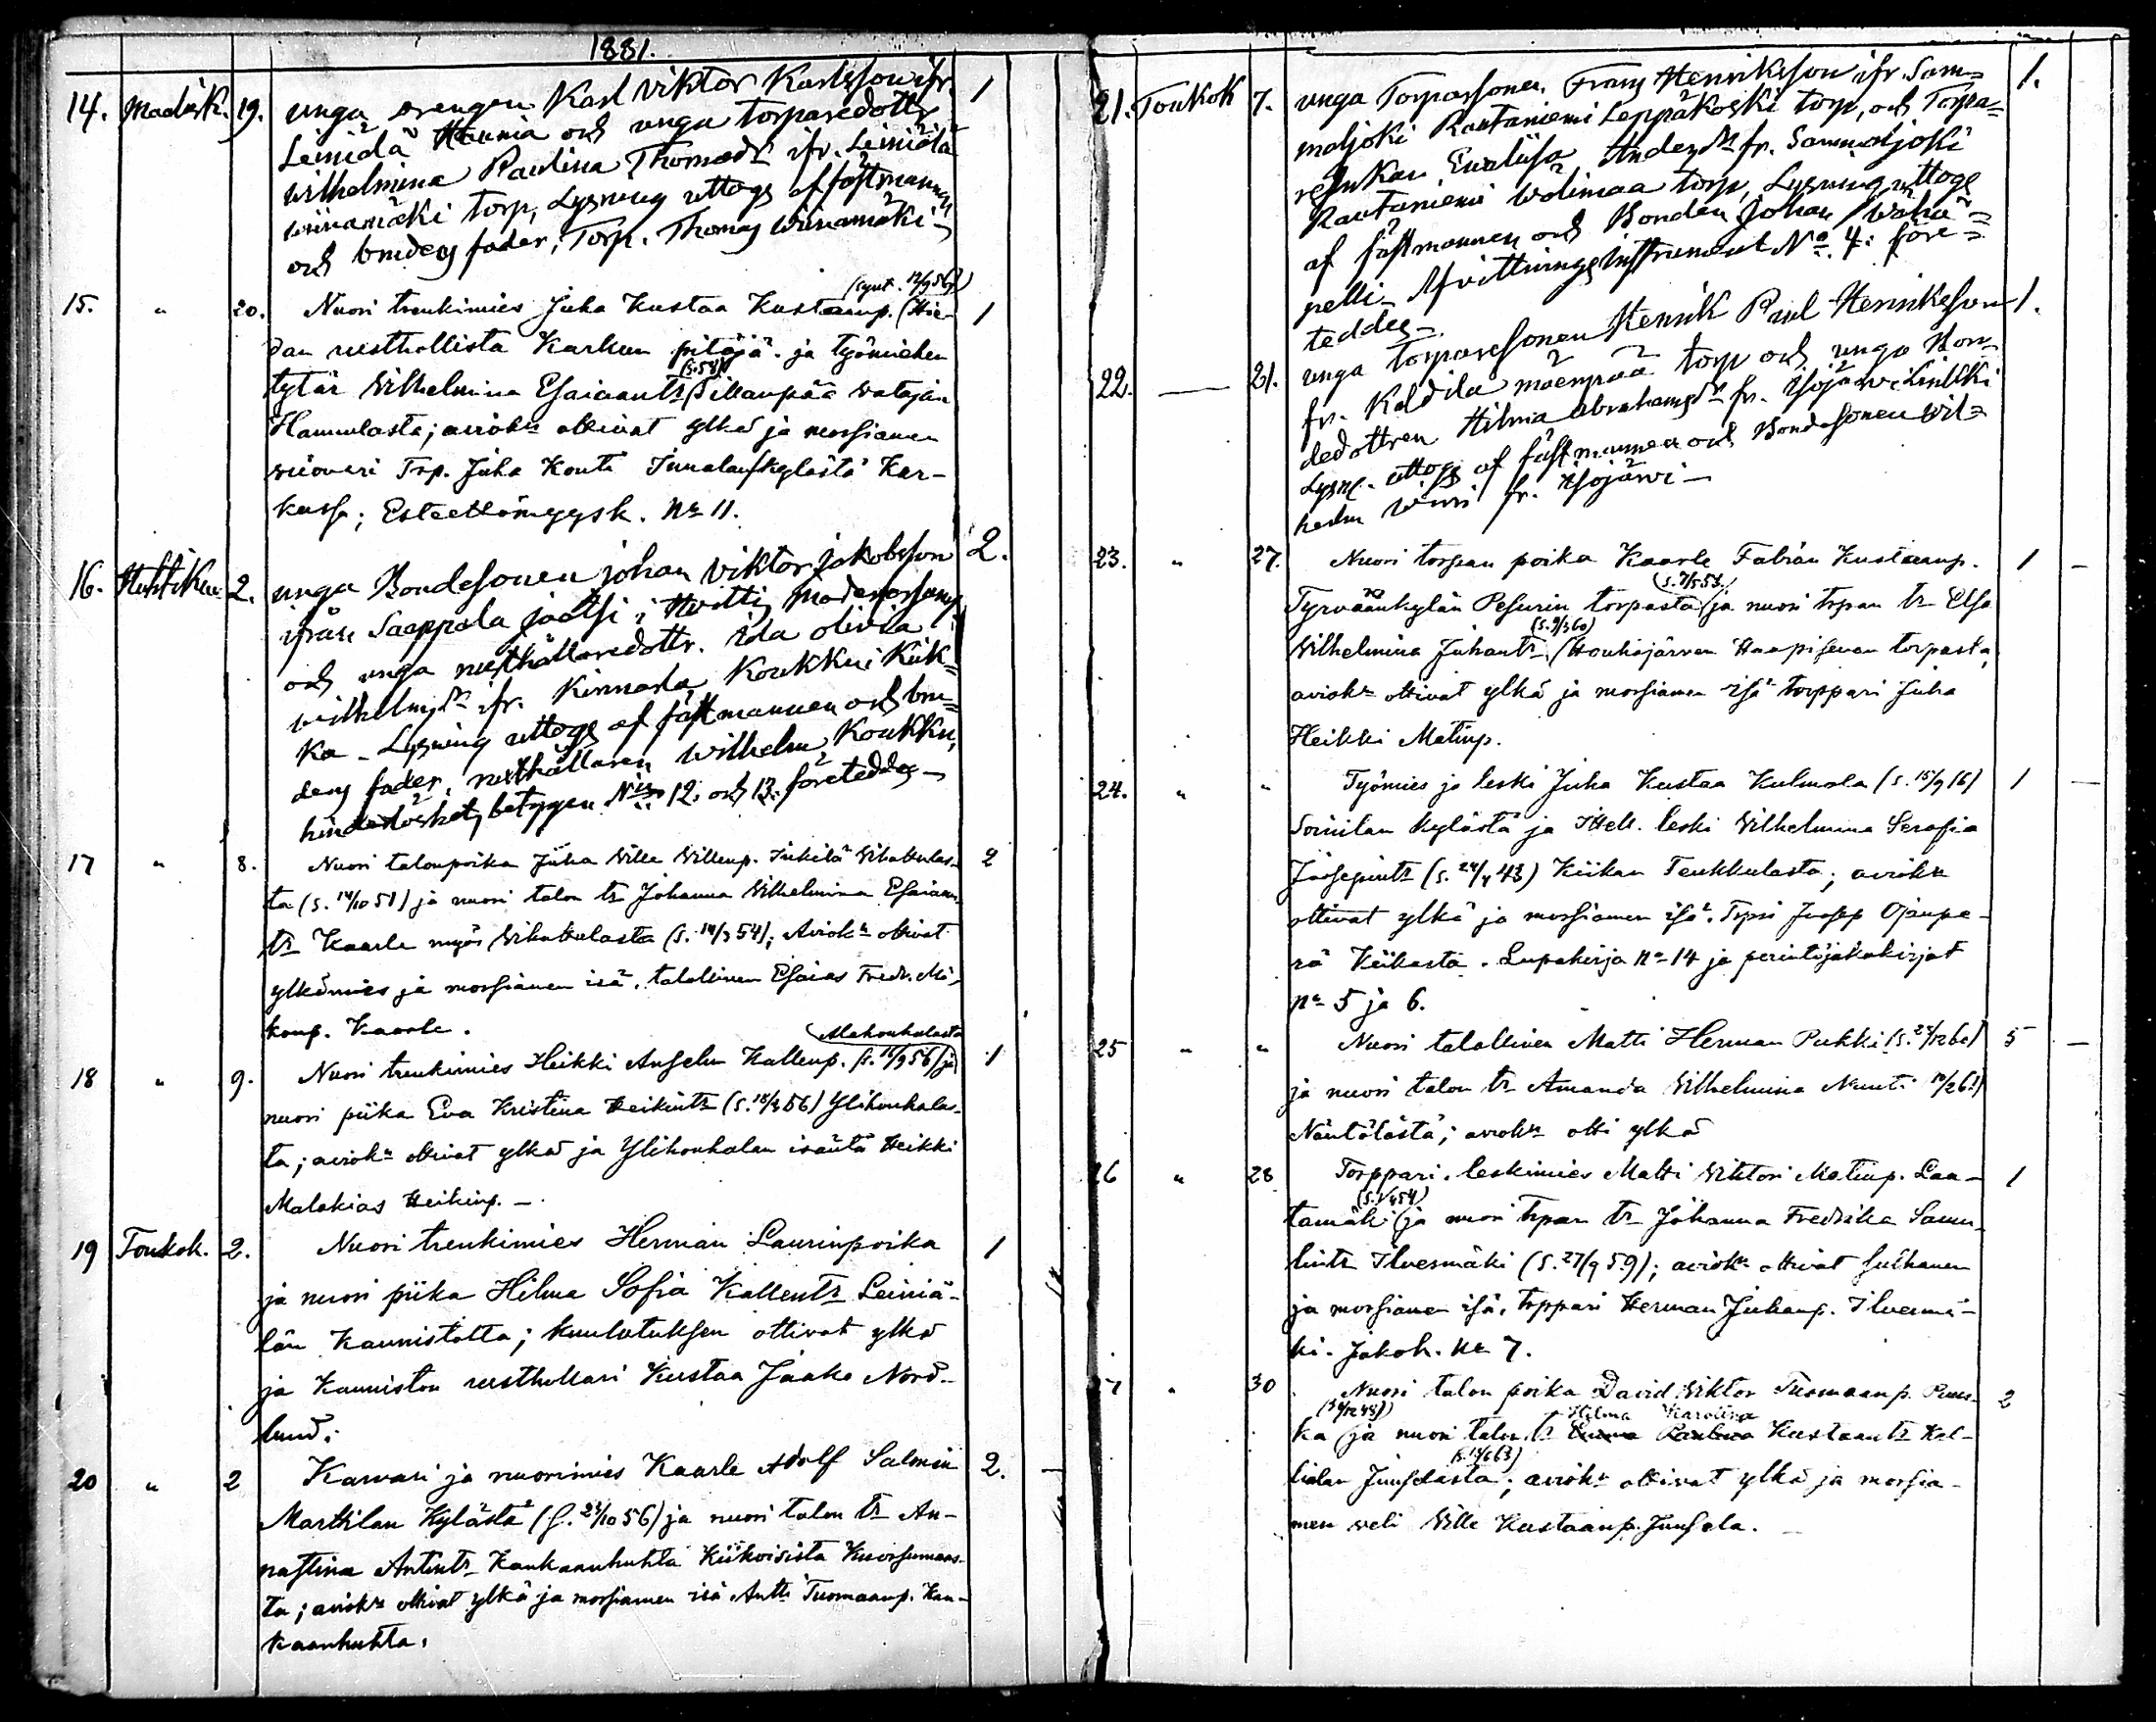 1881.
14. Maalisk. 19. unga drengen Karl Viktor Karlsson ifr. 1
Leiniälä Haunia och unga torparedottr
Wilhelmina Paulina Thomasdr ifr. Leiniälä
Wiinamäki torp, Lysning uttogs af fästmannen
och brudens fader, Torp. Thomas Wiinamäki
(synt. 12/9 56)
15. " 20. Nuori trenkimies Juha Kustaa Kustaanp. (Hie- 1
dan rusthollista Karkun pitäjä. ja työmiehen
(s. 58)
tytär Wilhelmina Esaiaantr Sillanpää watajan
Hannulasta; aviokn ottivat ylkä ja morsiamen
Trp. Juha Konti kylästä Kar-
kussa; Esteettömyysk. No 11.
16. Huhtikuu 2. unga Bondesonen Johan Viktor Jakobsson 2.
ifrån Saappala i Hvittis Moderförsaml.
och unga rusthållaredottr. Ida Olivia
Wilhelmsdr ifr. Kinnala Koukku i Kiik-
ka - Lysning uttogs af fästmannen och bru-
dens fader, rusthållaren Wilhelm Koukku,
hinderslöshets betygen Nis 12. och 13. företeddes -
17 " 8. Nuori talonpoika Juha Wille Willenp. Wihattulas- 2
ta (s. 14/10 51) ja nuori talon tr Johanna Wilhelmina Esaiaan-
tr Kaarle myös Wihattulasta (s. 14/3 54); Aviokn ottivat
ylkämies ja morsiamen isä, talollinen Esaias Fredr. Mi-
konp. Kaarle.
Alahouhalasta
18 " 9. Nuori trenkimies Heikki Anselm Kallenp. (s. 16/9 56) ja 1
nuori piika Eva Kristina Heikintr (s. 18/3 56) Ylihouhalas-
ta; aviokn ottivat ylkä ja Ylihouhalan isäntä Heikki
Malakias Heikinp. -
19 Toukok. 2. Nuori trenkimies Herman Laurinpoika 1
ja nuori piika Hilma Sofia Kallentr Leiniä-
län Kaunistolta; kuulutuksen ottivat ylkä
ja Kauniston rusthollari Kustaa Jaako Nord-
lund.
20 " 2 Karvari ja nuorimies Kaarle Adolf Salmin 2.
Marttilan Kylästä (s. 23/10 56) ja nuori talon tr An-
nastina Antintr Kankaanhuhta Kiikoisista Kuorsumaas-
ta; aviokn ottivat ylkä ja morsiamen isä Antti Tuomaanp. Kan-
kaanhuhta.
21. Toukok 7. unga Torparesonen Frans Henriksson ifr. Sam- 1.
maljoki Rautaniemi Leppäkoski torp, och Torpa-
repigan Evaliisa Andersdr fr. Sammaljoki
Rautaniemi Wolimaa torp, Lysning uttogs
af fästmannen och Bonden Johan Wähä-
pelli - Afvittrings Instrument No. 4. före-
teddes -
22. — 21. unga torparesonen Henrik Paul Henriksson 1.
fr. Kaldila mäenpää torp och unga Bon-
dedottren Hilma Abrahamsdr fr. Isojärvi
Lysn. uttogs af fästmannen och Bondesonen Wil-
helm fr. Isojärvi -
23. " 27. Nuori torpan poika Kaarle Fabian Kustaanp. 1
(s. 7/5 53.)
Tyrväänkylän Pesurin torpasta (ja nuori trpan tr Elsa
(s. 9/3 60)
Wilhelmina Juhantr (Houhijärven Haapisenan torpasta,
aviokn ottivat ylkä ja morsiamen isä torppari Juha
Heikki Matinp.
24. " " Työmies ja leski Juha Kustaa Kulmala (s. 15/9 16) 1
Soinilan kylästä ja Itsell. leski Wilhelmina Serafia
Joosepintr (s. 24/4 43) Kiikan Teukkulasta; aviokn
ottivat ylkä ja morsiamen isä. Trpri Joosep Ojanpe-
rä Kiikasta. Lupakirja no 14 ja perintöjakokirjat
no 5 ja 6.
25 " " Nuori talollinen Matti Herman Pukki (s. 28/12 60) 5
ja nuori talon tr Amanda Wilhelmina 10/2 61)
Näntölästä; aviokn otti ylkä
26 " 28 Torppari, leskimies Matti Wiktori Matinp. Lau- 1
(s. 1/4 54)
tamäki (ja nuori trpan tr Johanna Fredrika Samu-
lintr Ilvesmäki (s. 27/9 59); aviokn ottivat sulhanen
ja morsiamen isä, torppari Herman Juhanp. Ilvesmä-
ki. Jakok. No 7.
27 " 30 Nuori talon poika David Wiktor Tuomaanp. 2
Hilma Karolina
ka (ja nuori talon tr Emma Paulina Kustaantr Kal-
lialan Juusolasta; aviokn ottivat ylkä ja morsia-
men veli Wille Kustaanp. Juusola.